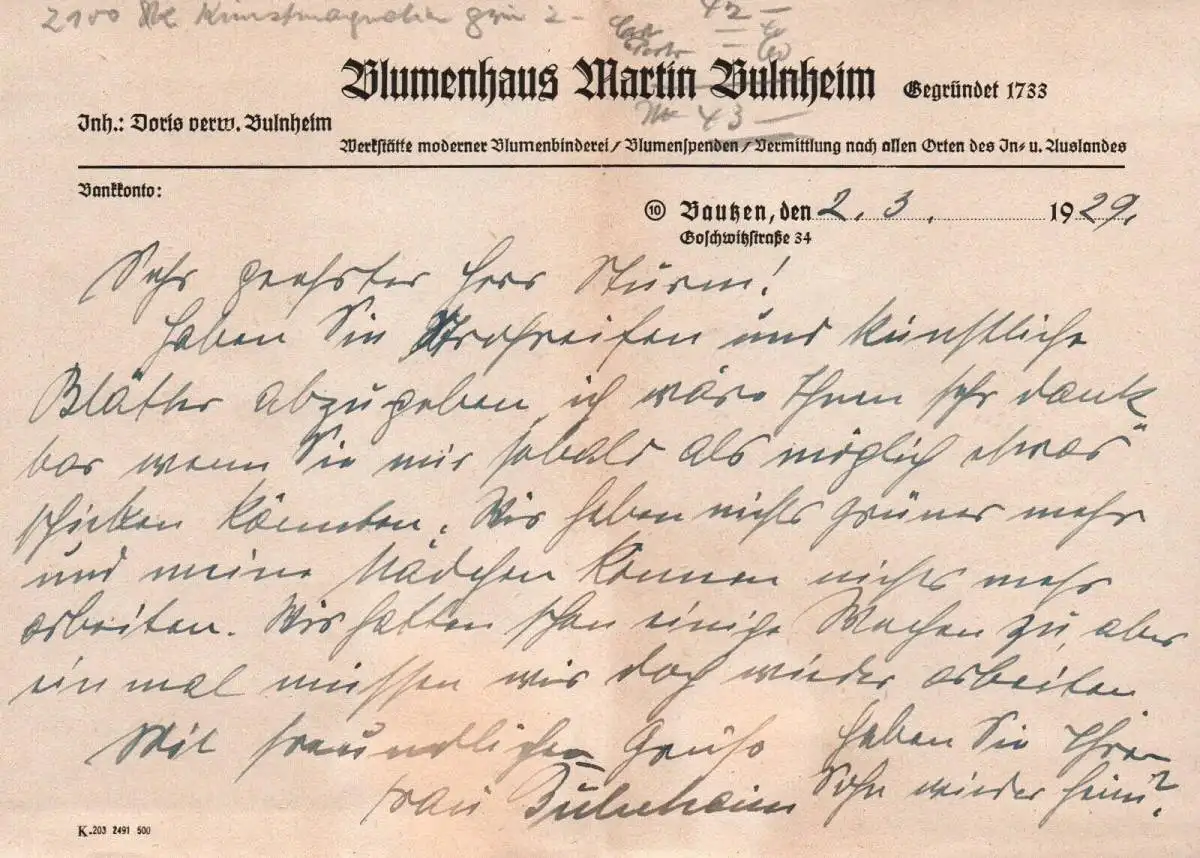 2100 Stk Kunstmagnolien grün 2-
42 -
No 43 -
Blumenhaus Martin Bulnheim Gegründet 1733
Inh.: Doris verw. Bulnheim
Werkstätte moderner Blumenbinderei / Blumenspenden / Vermittlung nach allen Orten des In- u. Auslandes
Bankkonto:
⑩ Bautzen, den 2. 3. 1929.
Goschwitzstraße 34
Sehr geehrter Herr Sturm!
Haben Sie Strohreifen und künstliche
Blätter abzugeben, ich wäre Ihnen sehr dank-
bar wenn Sie mir sobald als möglich etwas
schicken könnten. Wir haben nichts grünes mehr
und meine Mädchen können nichts mehr
arbeiten. Wir hatten schon einige Wochen zu, aber
einmal müssen wir doch wieder arbeiten
Mit freundlichen Gruß
Frau Bulnheim
Haben Sie Ihren
Sohn wieder heim?
K.203 2491 500